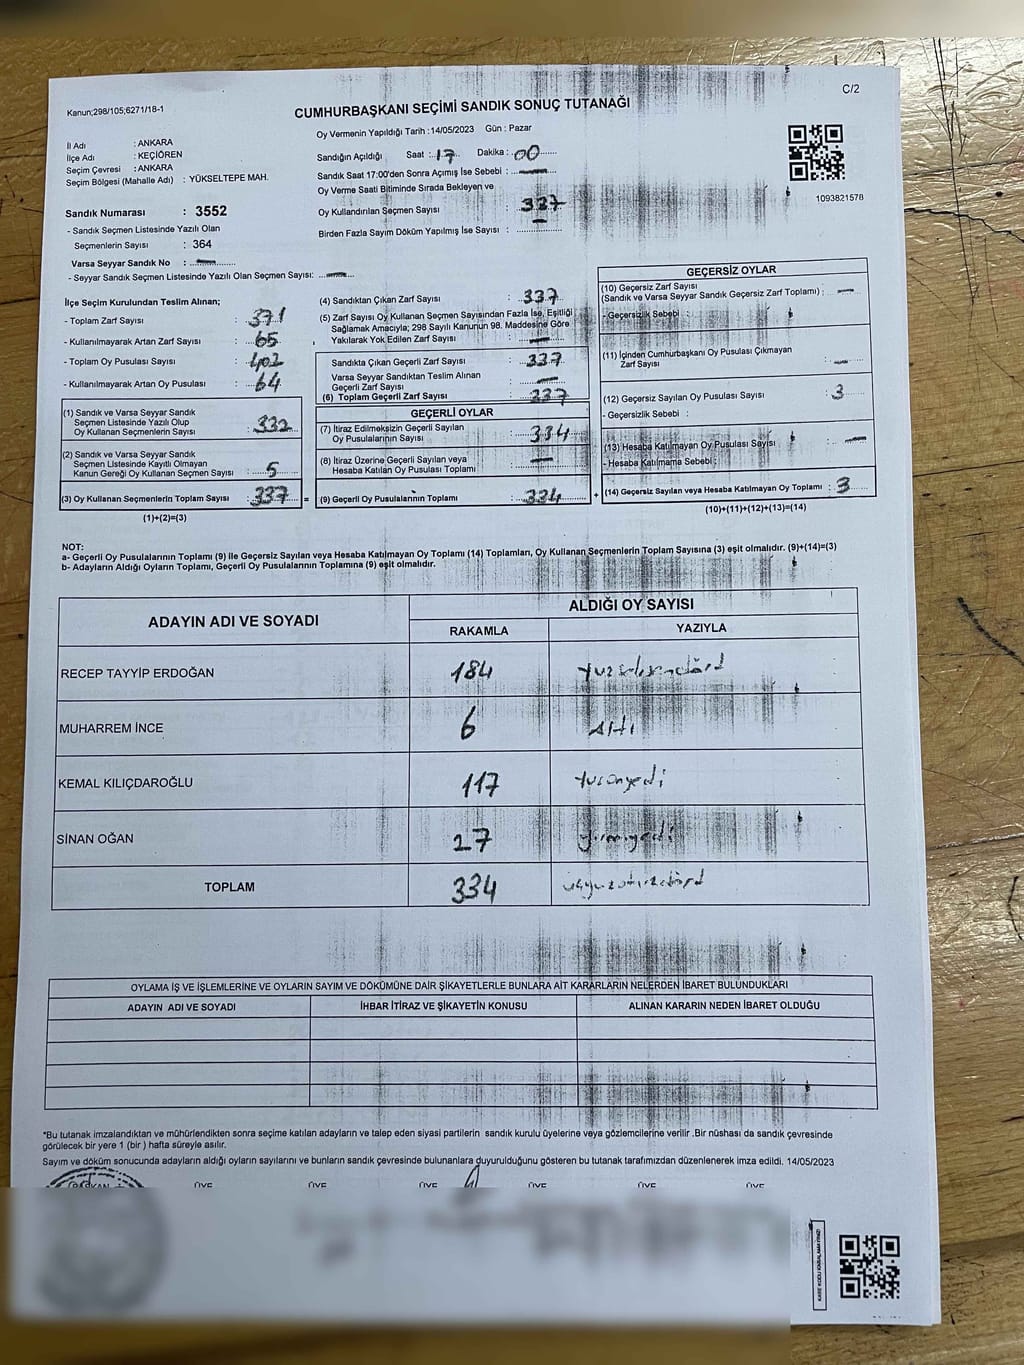 Kanun;298/105;6271/18-1
C/2
CUMHURBAŞKANI SEÇİMİ SANDIK SONUÇ TUTANAĞI
Oy Vermenin Yapıldığı Tarih :14/05/2023 Gün : Pazar
İl Adı : ANKARA
İlçe Adı : KEÇİÖREN
Seçim Çevresi : ANKARA
Seçim Bölgesi (Mahalle Adı) : YÜKSELTEPE MAH.
Sandığın Açıldığı Saat :..17.. Dakika :..00..
Sandık Saat 17:00'den Sonra Açımış İse Sebebi : —
Oy Verme Saati Bitiminde Sırada Bekleyen ve
Oy Kullandırılan Seçmen Sayısı : 337
Birden Fazla Sayım Döküm Yapılmış İse Sayısı : —
1093821578
Sandık Numarası : 3552
- Sandık Seçmen Listesinde Yazılı Olan
Seçmenlerin Sayısı : 364
Varsa Seyyar Sandık No : —
- Seyyar Sandık Seçmen Listesinde Yazılı Olan Seçmen Sayısı: —
İlçe Seçim Kurulundan Teslim Alınan;
- Toplam Zarf Sayısı : 371
- Kullanılmayarak Artan Zarf Sayısı : 65
- Toplam Oy Pusulası Sayısı : 402
- Kullanılmayarak Artan Oy Pusulası : 64
(1) Sandık ve Varsa Seyyar Sandık
Seçmen Listesinde Yazılı Olup
Oy Kullanan Seçmenlerin Sayısı : 332
(2) Sandık ve Varsa Seyyar Sandık
Seçmen Listesinde Kayıtlı Olmayan
Kanun Gereği Oy Kullanan Seçmen Sayısı : 5
(3) Oy Kullanan Seçmenlerin Toplam Sayısı : 337 =
(1)+(2)=(3)
(4) Sandıktan Çıkan Zarf Sayısı : 337
(5) Zarf Sayısı Oy Kullanan Seçmen Sayısından Fazla İse, Eşitliği
Sağlamak Amacıyla; 298 Sayılı Kanunun 98. Maddesine Göre
Yakılarak Yok Edilen Zarf Sayısı : —
Sandıkta Çıkan Geçerli Zarf Sayısı : 337
Varsa Seyyar Sandıktan Teslim Alınan
Geçerli Zarf Sayısı : —
(6) Toplam Geçerli Zarf Sayısı : 337
GEÇERLİ OYLAR
(7) İtiraz Edilmeksizin Geçerli Sayılan
Oy Pusulalarının Sayısı : 334
(8) İtiraz Üzerine Geçerli Sayılan veya
Hesaba Katılan Oy Pusulası Toplamı : —
(9) Geçerli Oy Pusulalarının Toplamı : 334 +
GEÇERSİZ OYLAR
(10) Geçersiz Zarf Sayısı
(Sandık ve Varsa Seyyar Sandık Geçersiz Zarf Toplamı) : —
- Geçersizlik Sebebi :
(11) İçinden Cumhurbaşkanı Oy Pusulası Çıkmayan
Zarf Sayısı : —
(12) Geçersiz Sayılan Oy Pusulası Sayısı : 3
- Geçersizlik Sebebi :
(13) Hesaba Katılmayan Oy Pusulası Sayısı : —
- Hesaba Katılmama Sebebi :
(14) Geçersiz Sayılan veya Hesaba Katılmayan Oy Toplamı : 3
(10)+(11)+(12)+(13)=(14)
NOT:
a- Geçerli Oy Pusulalarının Toplamı (9) ile Geçersiz Sayılan veya Hesaba Katılmayan Oy Toplamı (14) Toplamları, Oy Kullanan Seçmenlerin Toplam Sayısına (3) eşit olmalıdır. (9)+(14)=(3)
b- Adayların Aldığı Oyların Toplamı, Geçerli Oy Pusulalarının Toplamına (9) eşit olmalıdır.
ADAYIN ADI VE SOYADI
ALDIĞI OY SAYISI
RAKAMLA YAZIYLA
RECEP TAYYİP ERDOĞAN 184 yuzseksendörd
MUHARREM İNCE 6 Altı
KEMAL KILIÇDAROĞLU 117 yuzonyedi
SİNAN OĞAN 27 yirmiyedi
TOPLAM 334 üçyuzotuzdörd
OYLAMA İŞ VE İŞLEMLERİNE VE OYLARIN SAYIM VE DÖKÜMÜNE DAİR ŞİKAYETLERLE BUNLARA AİT KARARLARIN NELERDEN İBARET BULUNDUKLARI
ADAYIN ADI VE SOYADI İHBAR İTİRAZ VE ŞİKAYETİN KONUSU ALINAN KARARIN NEDEN İBARET OLDUĞU
*Bu tutanak imzalandıktan ve mühürlendikten sonra seçime katılan adayların ve talep eden siyasi partilerin sandık kurulu üyelerine veya gözlemcilerine verilir .Bir nüshası da sandık çevresinde
görülecek bir yere 1 (bir ) hafta süreyle asılır.
Sayım ve döküm sonucunda adayların aldığı oyların sayılarını ve bunların sandık çevresinde bulunanlara duyurulduğunu gösteren bu tutanak tarafımızdan düzenlenerek imza edildi. 14/05/2023
BAŞKAN ÜYE ÜYE ÜYE ÜYE ÜYE ÜYE